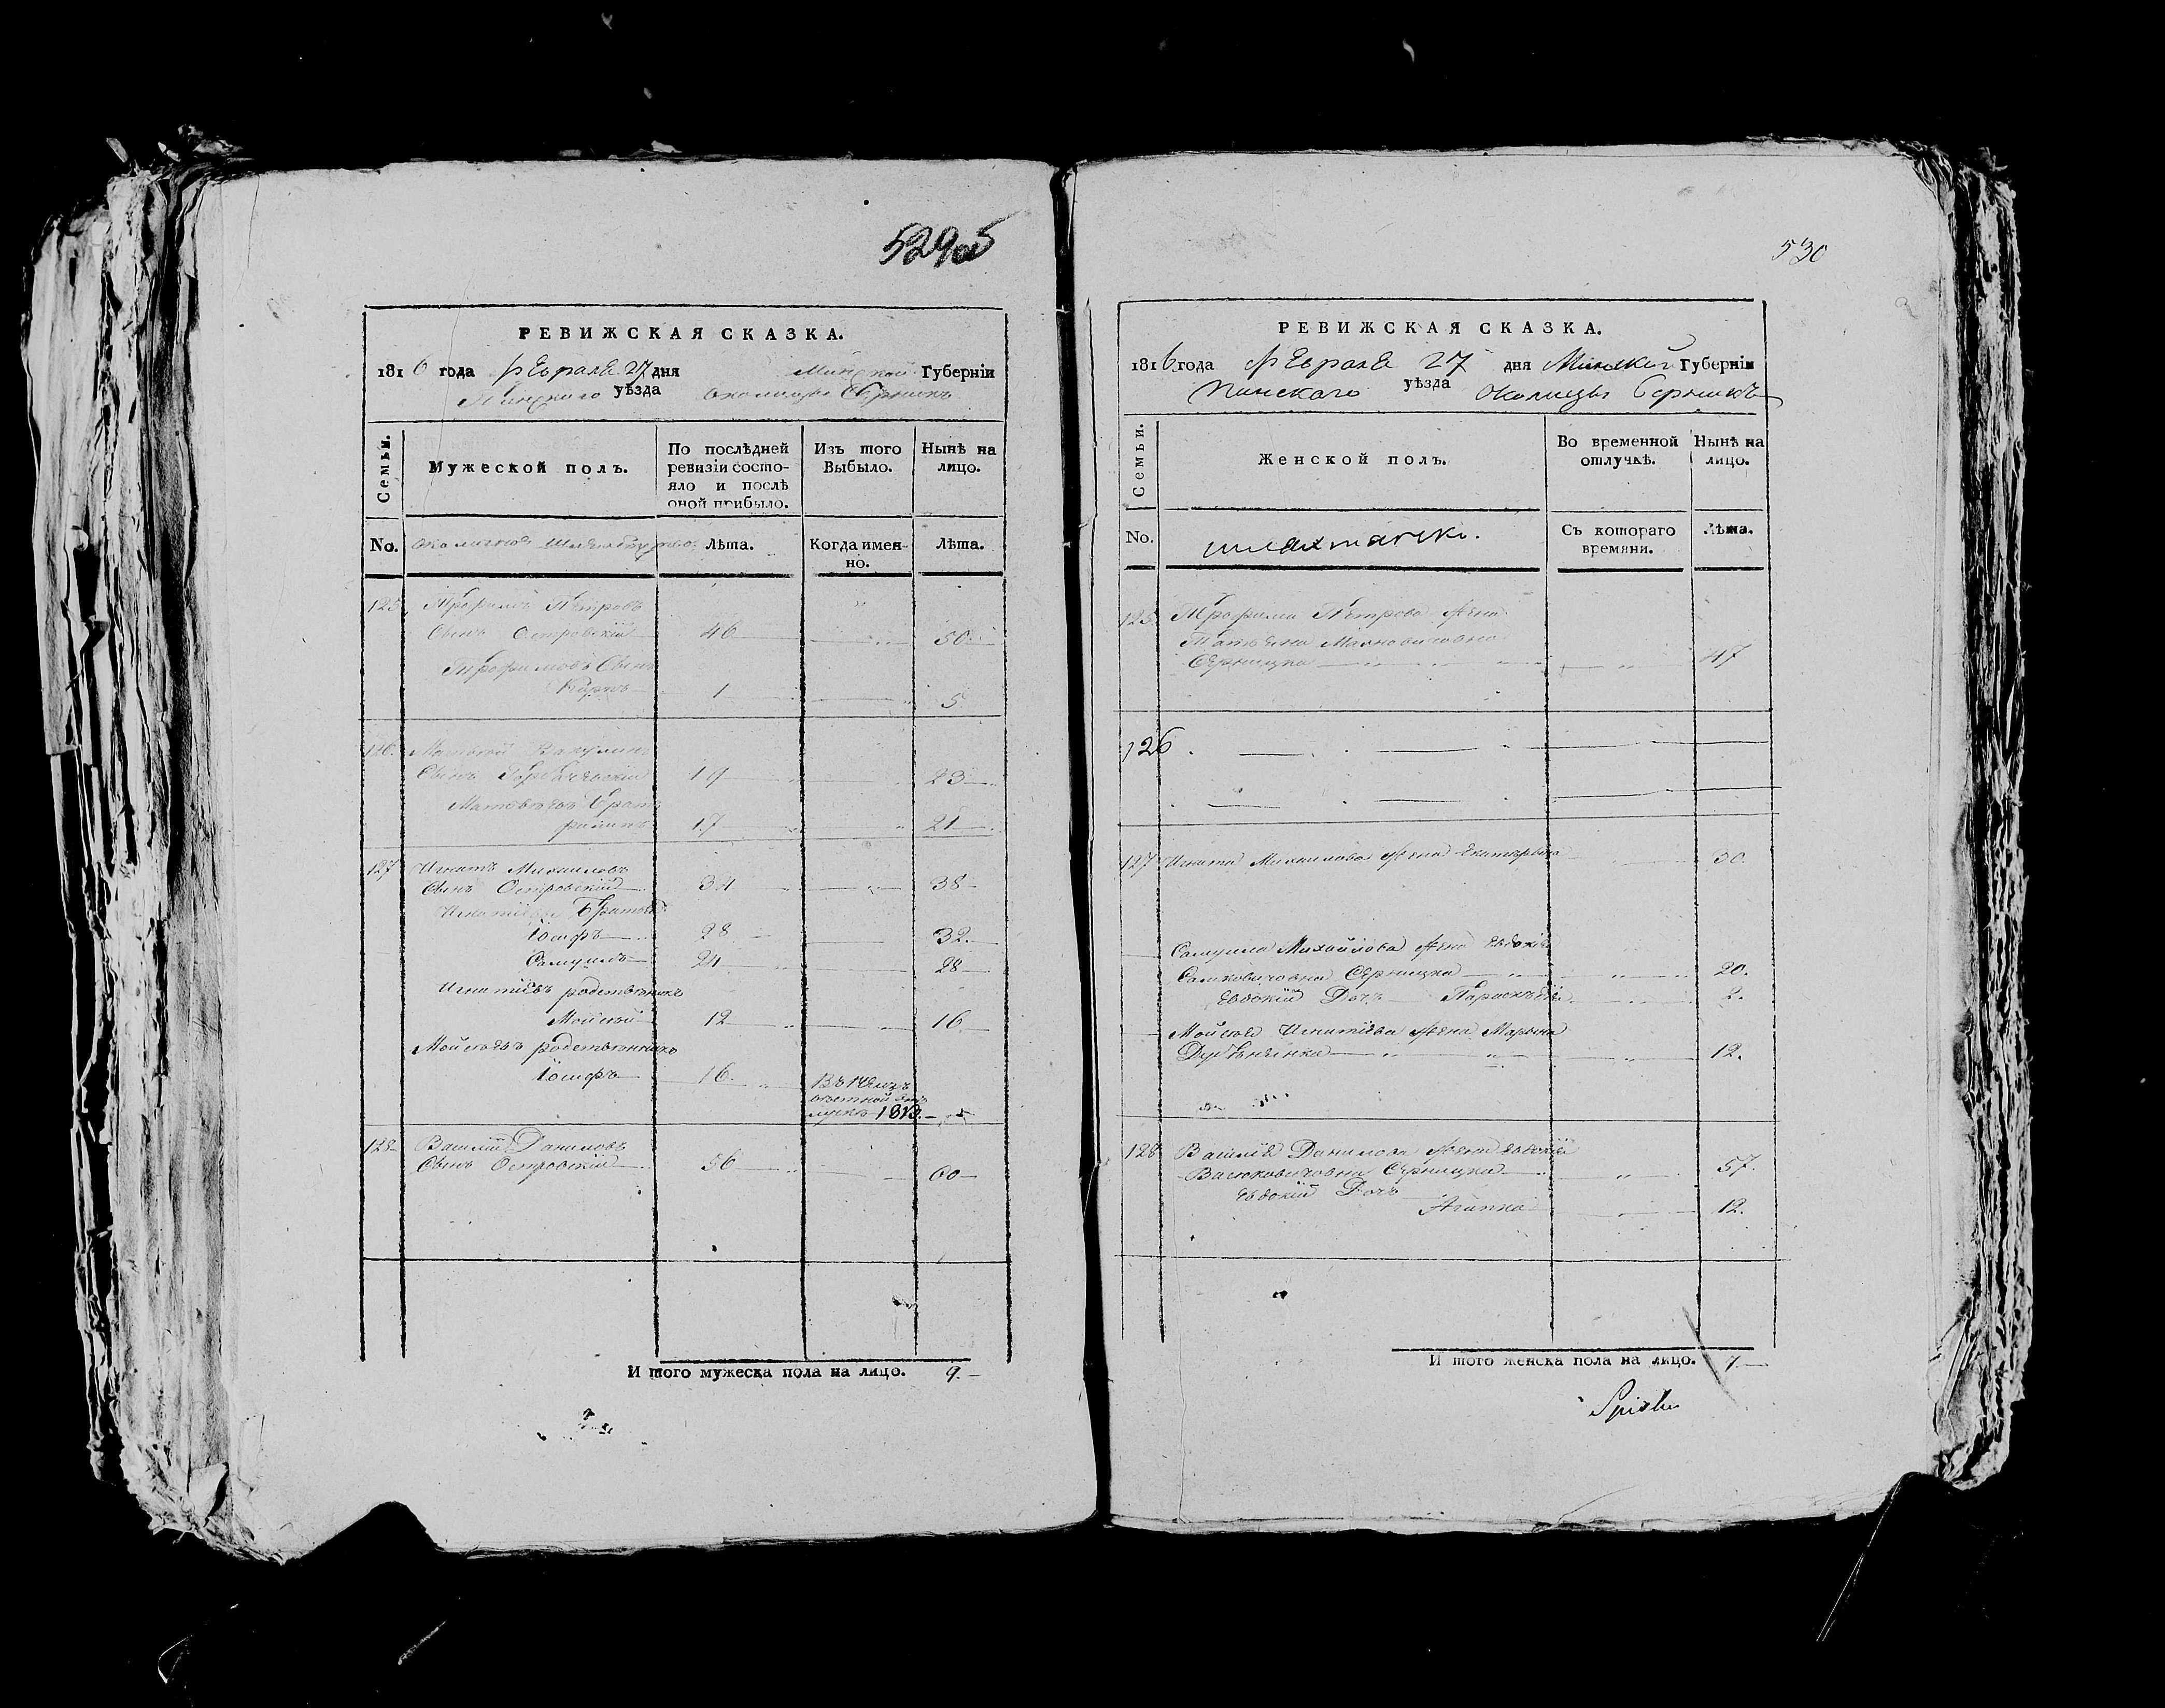 529об
РЕВИЖСКАЯ СКАЗКА.
1816 года февраля 27 дня Минской Губерніи
Пинскаго уѣзда околицы Серникъ
Семьи.
Мужеской полъ.
По послѣдней ревизіи состо-
яло и послѣ
оной прибыло.
Изъ того
Выбыло.
Нынѣ на
лицо.
No.
Лѣта.
Когда имен-
но.
Лѣта.
125 Трофимъ Петровъ
Сынъ Островскій 46 50
Трофимовъ Сынъ
Карпъ 1 5
126.
Сынъ 19 23
Матвѣевъ Братъ
17 21
127 Игнатъ Михаиловъ
Сынъ Островскій 34 38
Игнатіевы Братья
Іосифъ 28 32.
Самуилъ 24 28
Игнатіевъ родственникъ
Мойсей 12 16
Мойсеевъ родственникъ
Іосифъ 16. 1813.
128 Василій Даниловъ
Сынъ Островскій 56 60
И того мужеска пола на лицо. 9.
530
РЕВИЖСКАЯ СКАЗКА.
1816 года февраля 27 дня Минской Губерніи
Пинскаго уѣзда Околицы Серникъ
Семьи.
Женской полъ.
Во временной
отлучкѣ.
Нынѣ на
лицо.
No.
Съ котораго
времяни.
Лѣта.
125 Трофима Петрова Жена
Татьяна
Серницка 47
126.
127 Игната Михаилова Жена Екатерина 30.
Самуила Михайлова Жена Евдокія
Серницка 20.
Евдокіи Дочь Параскевія 2.
Мойсея Игнатіева Жена Марьяна
12.
128 Василія Данилова Жена Евдокія
Васюковичовна Серницка 57.
Евдокіи Дочь
Агапка 12.
И того женска пола на лицо. 7